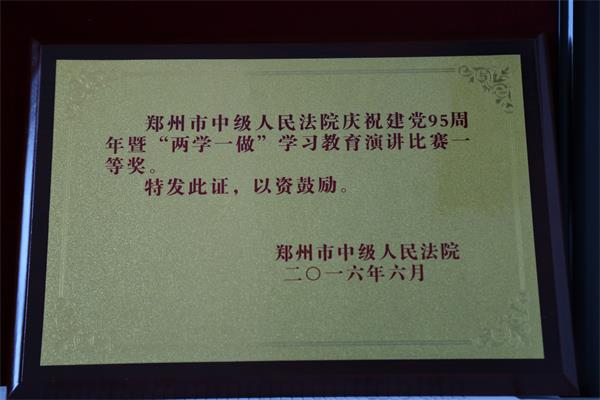 郑州市中级人民法院庆祝建党95周
年暨“两学一做”学习教育演讲比赛一
等奖。
特发此证，以资鼓励。
郑州市中级人民法院
二〇一六年六月